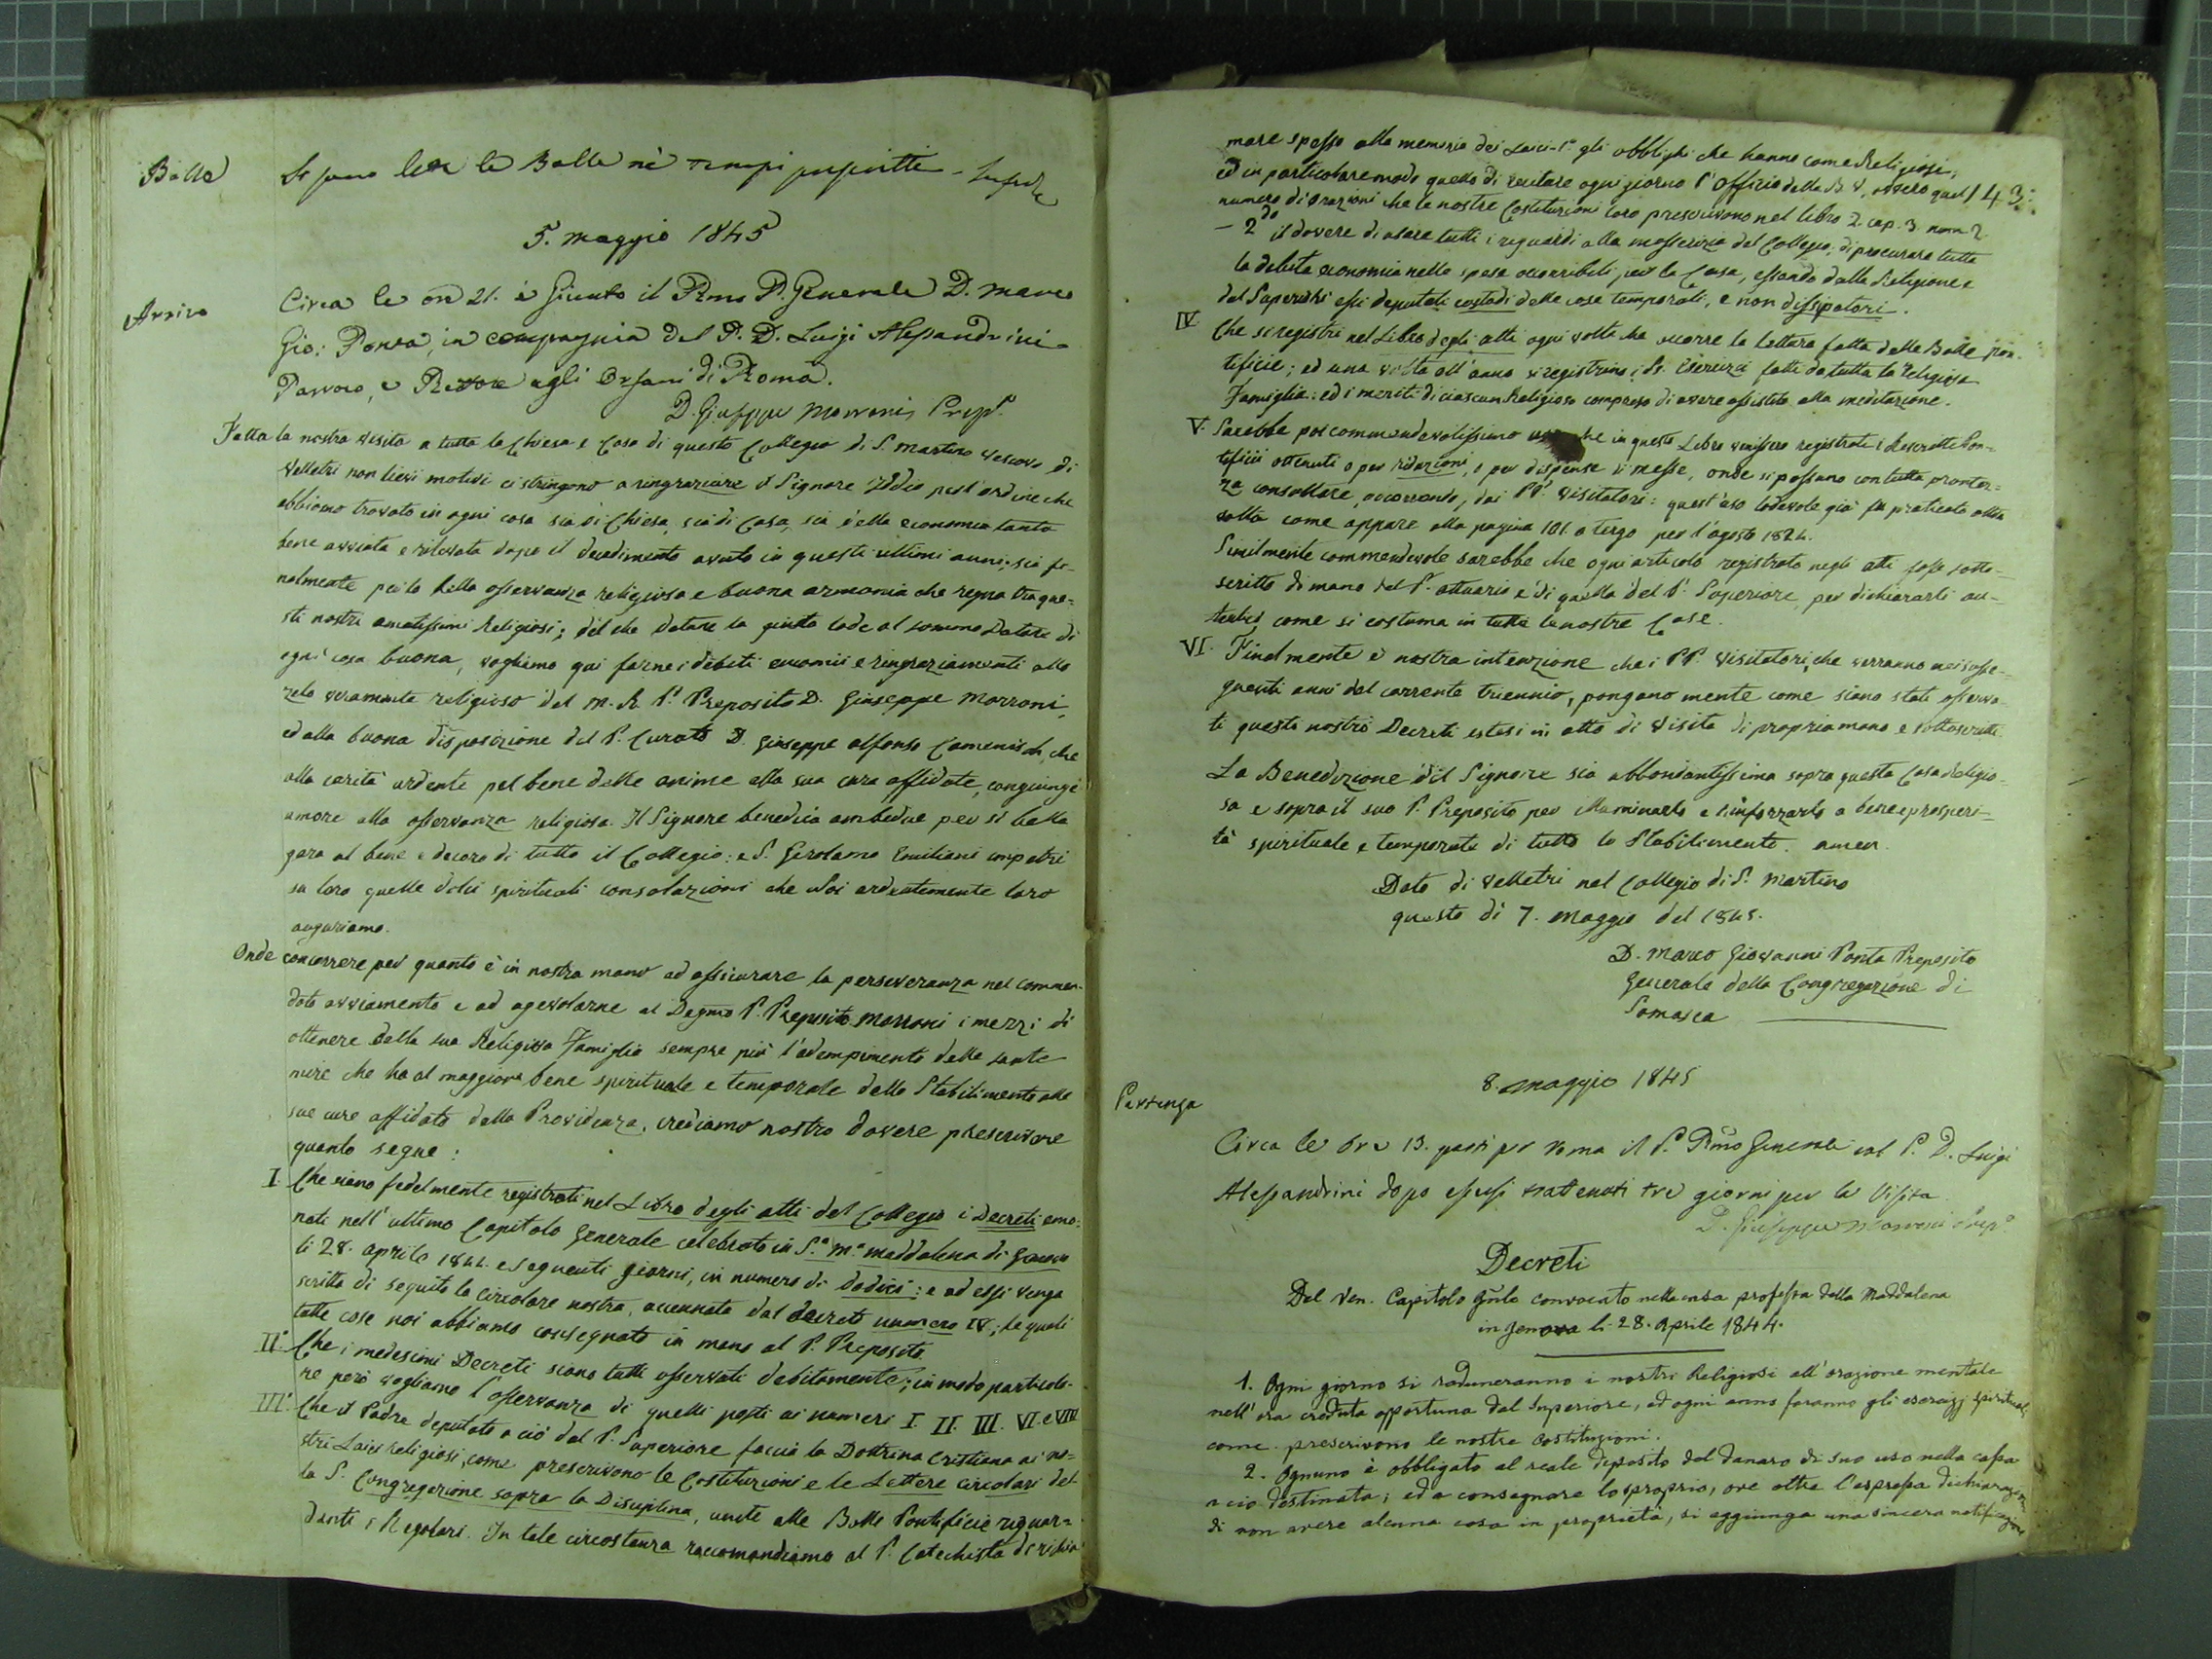 Bolle
Si sono lette le Bolle nè tempi prescritti -
5. Maggio 1845
Arrivo
Circa le ore 21. è Giunto il Rmo P. Generale D. Marco
Gio: Ponta, in compagnia del P. D. Luigi Alessandrini
Parroco, e Rettore agli Orfani di Roma.
D. Giuseppe Marroni Prep.
Fatta la nostra visita a tutta la Chiesa e Casa di questo Collegio di S. Martino Vescovo di
Velletri non lievi motivi ci stringono a ringraziare il Signore Iddio pell'ordine che
abbiamo trovato in ogni cosa sia di Chiesa, sia di Casa, sia della economia tanto
bene avviata e rilevata dopo il decadimento avuto in questi ultimi anni; sia fi-
nalmente per la bella osservanza religiosa e buona armonia che regna tra que-
sti nostri amatissimi Religiosi; del che datane la giusta lode al sommo Datore di
ogni cosa buona, vogliamo qui farne i debiti encomii e ringraziamenti allo
zelo veramente religioso del M. R. P. Preposito D. Giuseppe Marroni,
ed alla buona disposizione del P. Curato D. Giuseppe Alfonso Camenisch, che
alla carità ardente pel bene delle anime alla sua cura affidate, congiunge
amore alla osservanza religiosa. Il Signore benedica ambedue per sì bella
gara al bene e decoro di tutto il Collegio: e S. Girolamo Emiliani impetri
su loro quelle dolci spirituali consolazioni che Noi ardentemente loro
auguriamo.
Onde concorrere per quanto è in nostra mano ad assicurare la perseveranza nel commen-
dato avviamento e ad agevolarne al Degmo P. Preposito Marroni i mezzi di
ottenere dalla sua Religiosa Famiglia sempre più l'adempimento delle sante
mire che ha al maggiore bene spirituale e temporale dello Stabilimento alle
sue cure affidato dalla Providenza, crediamo nostro dovere prescrivere
quanto segue:
I. Che siano fedelmente registrati nel Libro degli atti del Collegio i Decreti ema-
nati nell'ultimo Capitolo Generale celebrato in S.a M.a Maddalena di Genova
li 28. Aprile 1844. e seguenti giorni, in numero di dodici: e ad essi venga
scritta di seguito la circolare nostra, accennata dal decreto numero IV; le quali
tutte cose noi abbiamo consegnato in mano al P. Preposito.
II. Che i medesimi Decreti siano tutti osservati debitamente; in modo particola-
re però vogliamo l'osservanza di quelli posti ai numeri I. II. III. VI. e VIII
III. Che il Padre deputato a ciò dal P. Superiore faccia la Dottrina Cristiana ai no-
stri Laici religiosi, come prescrivono le Costituzioni e le Lettere circolari del-
la S. Congregazione sopra la Disciplina, unite alle Bolle Pontificie riguar-
danti i Regolari. In tale circostanza raccomandiamo al P. Catechista di richia-
143:
mare spesso alla memoria dei Laici 1° gli obblighi che hanno come Religiosi,
ed in particolare modo quello di recitare ogni giorno l'Officio della B. V, ovvero quel
numero di orazioni che le nostre Costituzioni loro prescrivono nel libro 2. cap. 3. num. 2.
- 2do il dovere di usare tutti i reguardi alla masserizia del Collegio, di procurare tutta
la debita economia nelle spese occorribili per la Casa, essendo dalla Religione e
dal Superiori essi deputati custodi delle cose temporali, e non dissipatori.
IV. Che si registri nel Libro degli atti ogni volta che occorre la lettura fatta delle Bolle pon-
tificie; ed una volta all'anno si registrino i SS. Esercizi fatti da tutta la religiosa
Famiglia: ed i meriti di ciascun Religioso compreso di avere assistito alla meditazione.
V. Sarebbe poi commendevolissimo che in questo Libro venissero registrati i Rescritti Pon-
tificii ottenuti o per riduzioni, o per dispense di messe, onde si possano con tutta prontez-
za consultare, occorrendo, dai PP. Visitatori: quest'uso lodevole già fu praticato altra
volta come appare alla pagina 101. a tergo per l'agosto 1824.
Similmente commendevole sarebbe che ogni articolo registrato negli atti fosse sotto-
scritto di mano del P. attuario e di quella del P. Superiore, per dichiararli au-
tentici, come si costuma in tutte le nostre Case.
VI. Finalmente è nostra intenzione che i PP. Visitatori, che verranno nei susse-
guenti anni del corrente triennio, pongano mente come siano stati osserva-
ti questi nostri Decreti estesi in atto di Visita di propria mano e sottoscritti.
La Benedizione del Signore sia abbondantissima sopra questa Casa Religio-
sa e sopra il suo P. Preposito per illuminarlo e rinforzarlo a bene e prosperi-
tà spirituale e temporale di tutto lo Stabilimento. amen.
Dato di Velletri nel Collegio di S. Martino
questo dì 7. Maggio del 1845.
D. Marco Giovanni Ponta Preposito
Generale della Congregazione di
Somasca
8. Maggio 1845
Partenza
Circa le Ore 13. partì per Roma il P. Rmo Generale col P. D. Luigi
Alessandrini dopo essersi trattenuti tre giorni per la Visita.
D. Giuseppe Marroni Prep.
Decreti
Del Ven. Capitolo Gnle convocato nella casa professa della Maddalena
in Genova li 28. Aprile 1844.
1. Ogni giorno si raduneranno i nostri Religiosi all'orazione mentale
nell'ora creduta opportuna dal Superiore, ed ogni anno faranno gli esercizj spirituali
come prescrivono le nostre Costituzioni.
2. Ognuno è obbligato al reale deposito del danaro di suo uso nella cassa
a ciò destinata; ed a consegnare lo sproprio, ove oltre l'espressa dichiarazione
di non avere alcuna cosa in proprietà, si aggiunga una sincera notificazione